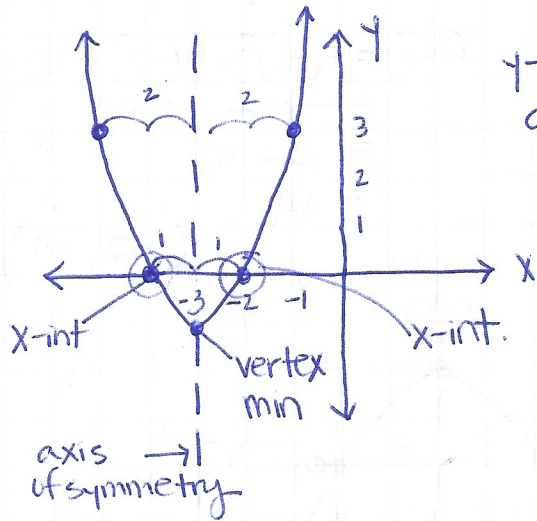 Y
2 2
3
2
1
1 1
X
-3 -2 -1
X-int
X-int.
vertex
min
axis
of symmetry